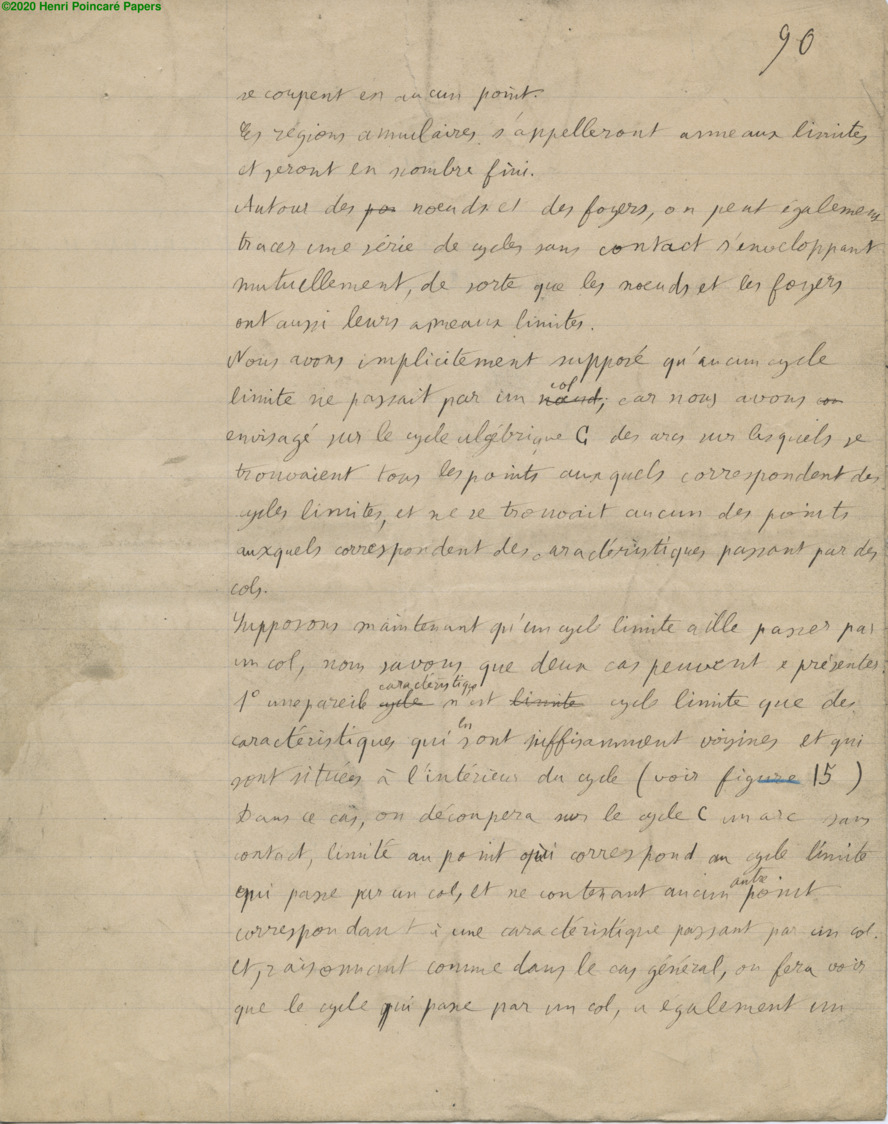 ©2020 Henri Poincaré Papers
90
se coupent en aucun point.
Ces régions annulaires s'appelleront anneaux limites
et seront en nombre fini.
Autour des noeuds et des foyers, on peut également
tracer une série de cycles sans contact s'enveloppant
mutuellement, de sorte que les noeuds et les foyers
ont aussi leurs anneaux limites.
Nous avons implicitement supposé qu'aucun cycle
col
limite ne passait par un noeud, car nous avons
envisagé sur le cycle algébrique C des arcs sur lesquels se
trouvaient tous les points auxquels correspondent des
cycles limites, et ne se trouvait aucun des points
auxquels correspondent des caractéristiques passant par des
cols.
Supposons maintenant qu'un cycle limite aille passer par
un col, nous savons que deux cas peuvent se présenter.
caractéristique
1° une pareille cycle n'est limite cycle limite que des
en
caractéristiques qui sont suffisamment voisines et qui
sont situées à l'intérieur du cycle (voir figure 15)
Dans ce cas, on découpera sur le cycle C un arc sans
contact, limité au point qui correspond au cycle limite
qui passe par un col, et ne contenant aucun point
autre
correspondant à une caractéristique passant par un col.
Et, raisonnant comme dans le cas général, on fera voir
que le cycle qui passe par un col, a également un